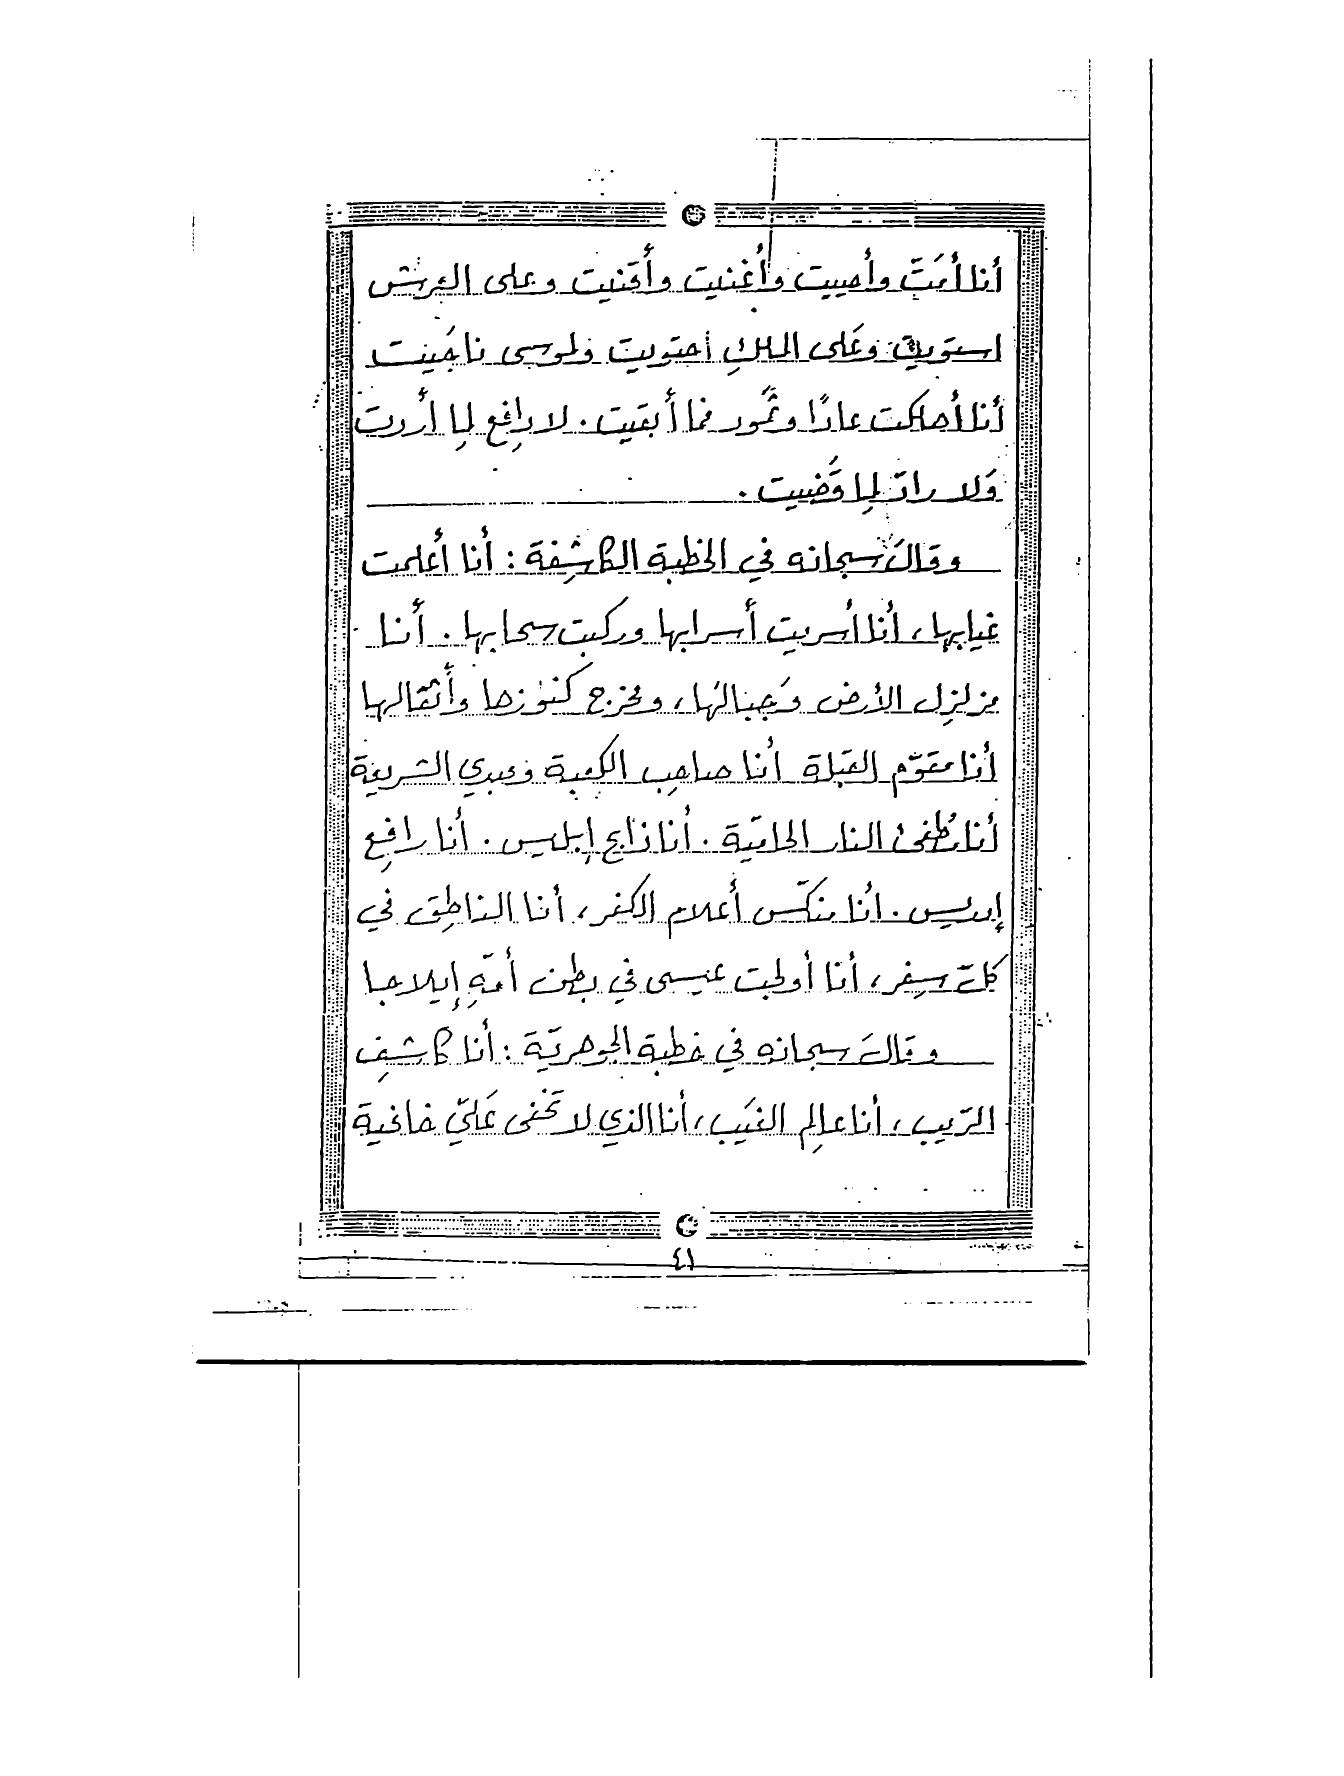 أنا أمَتّ وأحييت وأغنيت وأقنيت وعلى العرش
استويت وعَلى الملكِ احتويت ولموسى ناجَيت
أنا أهلكت عادًا وثمُود فما أبقيت . لا رافِع لِما أردت
وَلا رادّ لِما قَضيت .
وقالَ سبحانه في الخطبة الكاشِفة : أنا أعلمت
غيابها، أنا أسريت أسرابها وركبت سحابها . أنا
مزلزِل الأرض وَجبالهَا، ومخرج كنوزها وأثقالها
أنا مقوّم القبلة أنا صاحِب الكعبة ومبدي الشريعة
أنا مُطفئ النار الحاميَة . أنا ذابح إبليس . أنا رافِع
إدريس . أنا منكّس أعلام الكفر، أنا الناطِق في
كلّ سِفر، أنا أولجت عيسى في بطن أمّهِ إيلاجا
وقالَ سبحانه في خطبة الجوهريّة : أنا كاشِف
الرّيب، أنا عالِم الغيَب، أنا الذي لا تَخفى عَليّ خافية
٤١